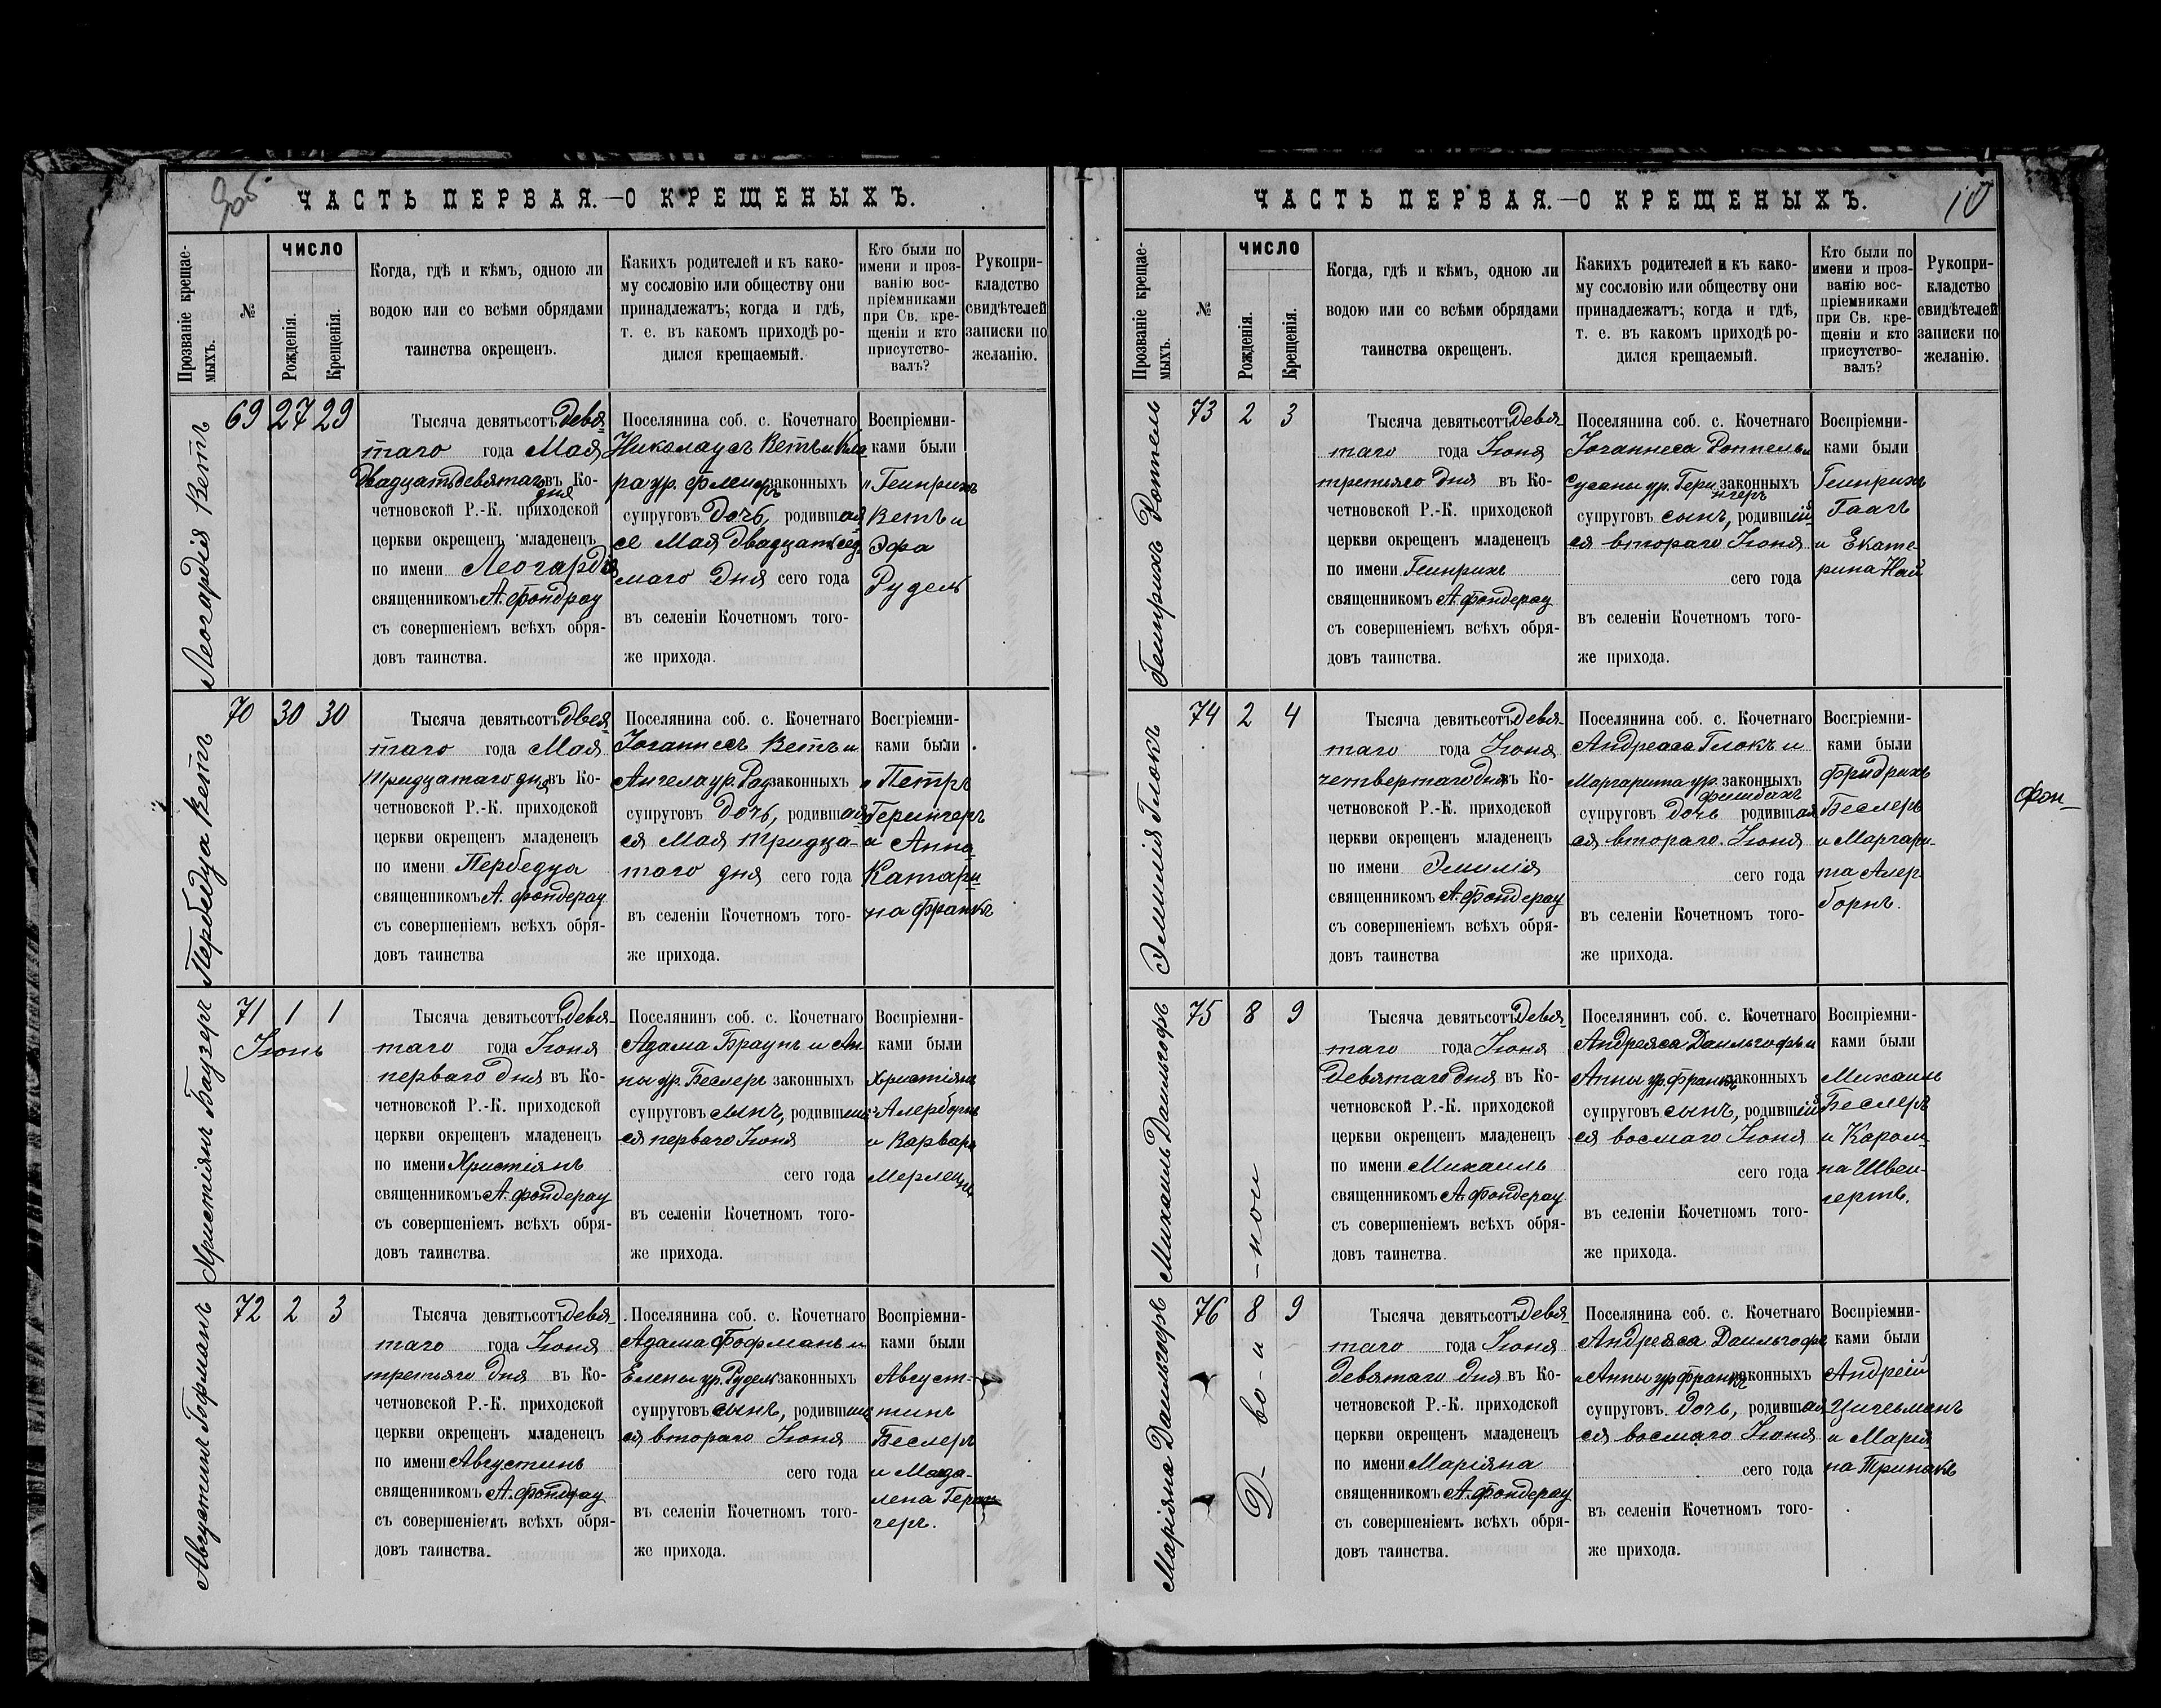 9об.
ЧАСТЬ ПЕРВАЯ.—О КРЕЩЕНЫХЪ.
Прозваніе крещае-
мыхъ.
№
ЧИСЛО
Рожденія.
Крещенія.
Когда, гдѣ и кѣмъ, одною ли
водою или со всѣми обрядами
таинства окрещен.
Каких̣ъ родителей и къ како-
му сословію или обществу они
принадлежатъ; когда и гдѣ,
т. е. въ какомъ приходѣ ро-
дился крещаемый.
Кто были по
имени и проз-
ванію вос-
пріемниками
при Св. кре-
щеніи и кто
присутство-
валъ?
Рукопри-
кладство
свидѣтелей
записки по
желанію.
Леогардія Ветъ
69 27 29
Тысяча девятьсотъ Девя
таго года Мая
Двадцатьдевятаго въ Ко-
дня
четновской Р.-К. приходской
церкви окрещенъ младенецъ
по имени Леогардія
священникомъ А. Фондрау
съ совершеніемъ всѣхъ обря-
довъ таинства.
Поселянина соб. с. Кочетнаго
Николаусъ Ветъ и Кла
ра ур. законныхъ
супруговъ Дочь, родившая
ся Мая Двадцатьсед
маго Дня сего года
въ селеніи Кочетномъ того-
же прихода.
Воспріемни-
ками были
Генрихъ
Ветъ и
Эфа
Рудель
Пербедуа Ветъ
70 30 30
Тысяча девятьсотъ Двея
таго года Мая
Тридцатаго дня въ Ко-
четновской Р.-К. приходской
церкви окрещенъ младенецъ
по имени Пербедуа
священникомъ А. Фондерау
съ совершеніемъ всѣхъ обря-
довъ таинства
Поселянина соб. с. Кочетнаго
Іоганнесъ Ветъ и
Ангела ур. Рау законныхъ
супруговъ Дочь, родившая
ся Мая Тридца-
таго дня сего года
въ селеніи Кочетномъ того-
же прихода.
Воспріемни-
ками были
Петръ
Герингеръ
и Анна
Катари
на Франкъ
Христіянъ Баузеръ
71 1 1
Іюнь
Тысяча девятьсотъ Девя-
таго года Іюня
перваго Дня въ Ко-
четновской Р.-К. приходской
церкви окрещенъ младенецъ
по имени Христіянъ
священникомъ А. Фондерау
съ совершеніемъ всѣхъ обря-
довъ таинства.
Поселянинъ соб. с. Кочетнаго
Адама Браунъ и Ан
ны ур. Беслеръ законныхъ
супруговъ сынъ, родившій
ся перваго Іюня
сего года
въ селеніи Кочетномъ того-
же прихода.
Воспріемни-
ками были
Христіянъ
Алерборнъ
и Варвара
Августинъ Гофманъ
72 2 3
Тысяча девятьсотъ Девя-
таго года Іюня
третьяго Дня въ Ко-
четновской Р.-К. приходской
церкви окрещенъ младенецъ
по имени Августинъ
священникомъ А. Фондрау
съ совершеніемъ всѣхъ обря-
довъ таинства.
Поселянина соб. с. Кочетнаго
Адама Гофманъ и
Елены ур. Рудель законныхъ
супруговъ сынъ, родившій
ся втораго Іюня
сего года
въ селеніи Кочетномъ того-
же прихода.
Воспріемни-
ками были
Август-
тинъ
Беслеръ
и Магда-
лена Герин
геръ.
10
ЧАСТЬ ПЕРВАЯ.—О КРЕЩЕНЫХЪ.
Прозваніе крещае-
мыхъ.
№
ЧИСЛО
Рожденія.
Крещенія.
Когда, гдѣ и кѣмъ, одною ли
водою или со всѣми обрядами
таинства окрещен.
Какихъ родителей и къ како-
му сословію или обществу они
принадлежатъ; когда и гдѣ,
т. е. въ какомъ приходѣ ро-
дился крещаемый.
Кто были по
имени и проз-
ванію вос-
пріемниками
при Св. кре-
щеніи и кто
присутство-
валъ?
Рукопри-
кладство
свидѣтелей
записки по
желанію.
Генрихъ Ротель
73 2 3
Тысяча девятьсотъ Девя-
таго года Іюня
третьяго Дня въ Ко-
четновской Р.-К. приходской
церкви окрещенъ младенецъ
по имени Генрихъ
священникомъ А. Фондерау
съ совершеніемъ всѣхъ обря-
довъ таинства.
Поселянина соб. с. Кочетнаго
Іоганнеса Роппель и
Сусаны ур. Гери законныхъ
нгеръ
супруговъ сынъ, родившій
ся втораго Іюня
сего года
въ селеніи Кочетномъ того-
же прихода.
Воспріемни-
ками были
Генрихъ
Гаагъ
и Екате-
рина Най
Эмилія Глокъ
74 2 4
Тысяча девятьсотъ Девя-
таго года Іюня
четвертаго Дня въ Ко-
четновской Р.-К. приходской
церкви окрещенъ младенецъ
по имени Эмилія
священникомъ А. Фондерау
съ совершеніемъ всѣхъ обря-
довъ таинства
Поселянина соб. с. Кочетнаго
Андреаса Глокъ и
Маргарита ур. законныхъ
фишбахъ
супруговъ Дочь родившая
ся втораго Іюня
сего года
въ селеніи Кочетномъ того-
же прихода.
Воспріемни-
ками были
Фридрихъ
Беслеръ
и Маргари-
та Алер
борнъ.
Фон-
Михаилъ Даильгофъ
75 8 9
Тысяча девятьсотъ Девя-
таго года Іюня
Девятаго Дня въ Ко-
четновской Р.-К. приходской
церкви окрещенъ младенецъ
по имени Михаилъ
священникомъ А. Фондерау
съ совершеніемъ всѣхъ обря-
довъ таинства.
Поселянинъ соб. с. Кочетнаго
Андреяса Даильгофъ и
Анны ур. Франкъ законныхъ
супруговъ сынъ, родившій
ся восмаго Іюня
сего года
въ селеніи Кочетномъ того-
же прихода.
Воспріемни-
ками были
Михаилъ
Беслеръ
и Кароли
на Швен-
гертъ.
Д-во-и-нои
Маріяна Даильгофъ
76 8 9
Тысяча девятьсотъ Девя-
таго года Іюня
Девятаго Дня въ Ко-
четновской Р.-К. приходской
церкви окрещенъ младенецъ
по имени Маріяна
священникомъ А. Фондерау
съ совершеніемъ всѣхъ обря-
довъ таинства.
Поселянина соб. с. Кочетнаго
Андреяса Даильгофъ
и Анны ур Франкъ законныхъ
супруговъ Дочь, родившая
ся восмаго Іюня
сего года
въ селеніи Кочетномъ того-
же прихода.
Воспріемни-
ками были
Андрей
Цигельманъ
и Марія
на Тринакъ